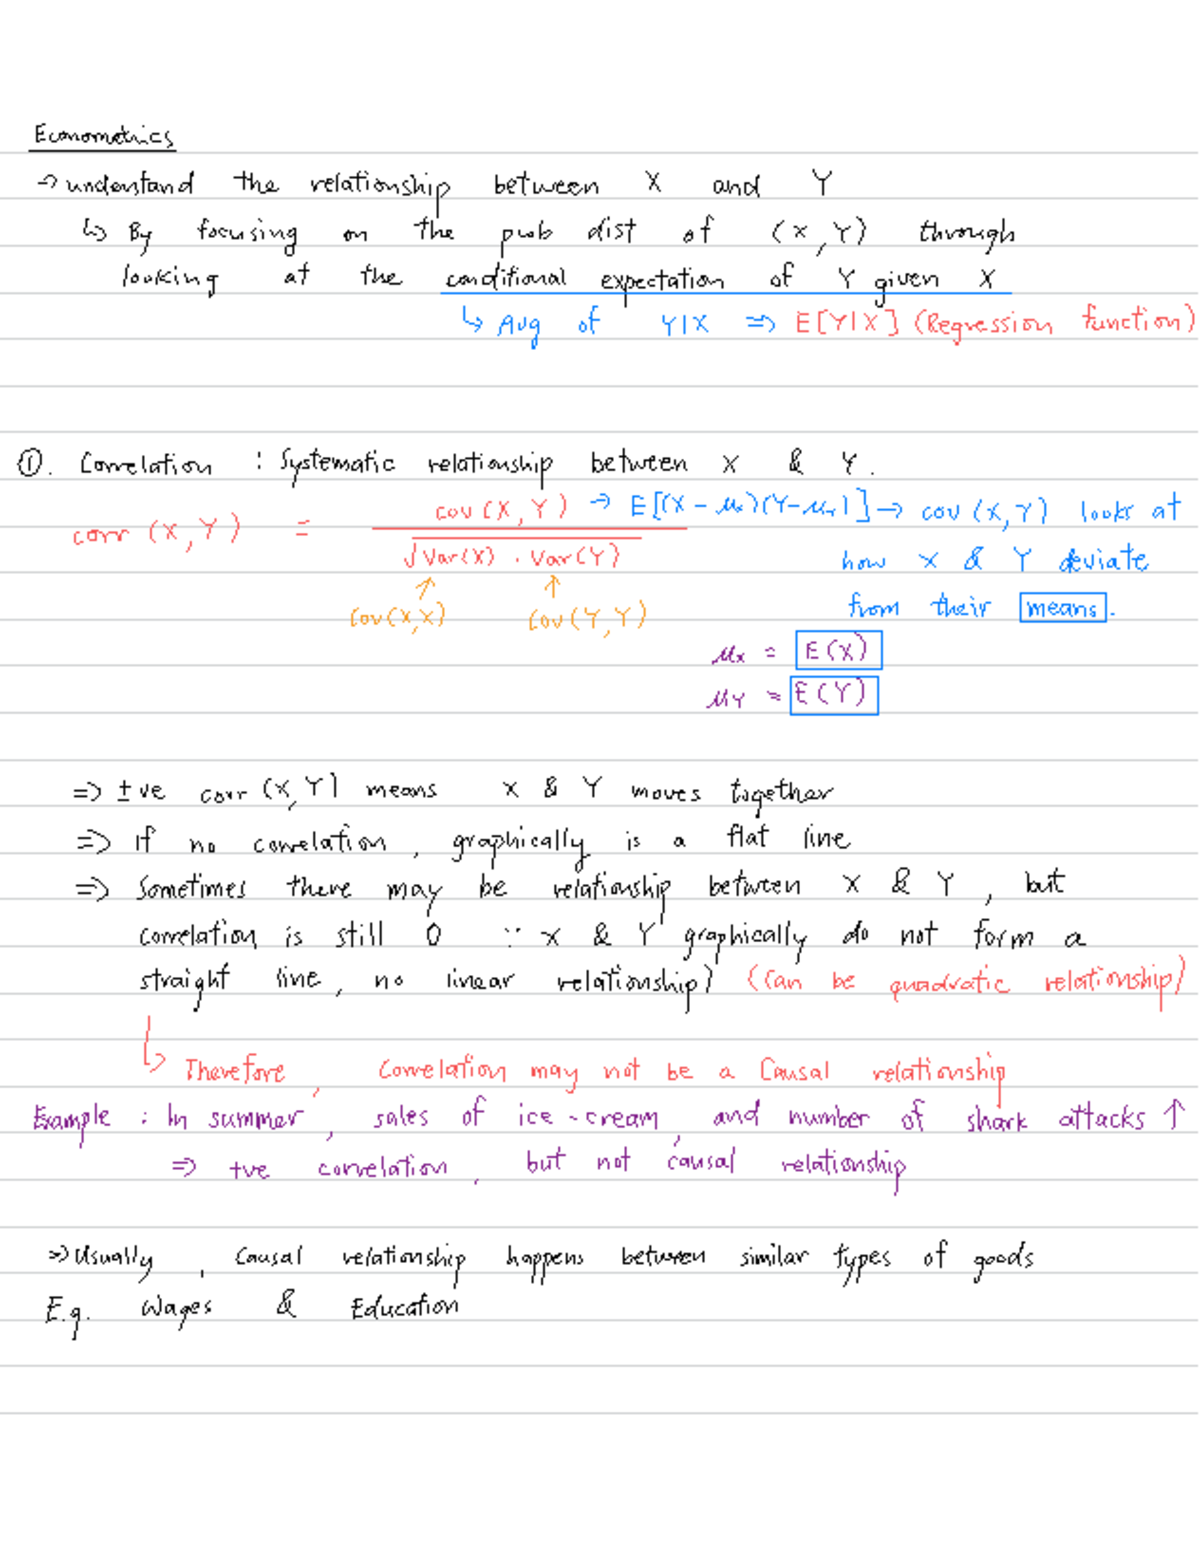 Econometrics
→ understand the relationship between X and Y
↳ By focusing on the prob dist of (X,Y) through
looking at the conditional expectation of Y given X
↳ Avg of Y|X ⇒ E[Y|X] (Regression function)
①. Correlation : Systematic relationship between X & Y.
corr (X,Y) = cov(X,Y) / √Var(X) · Var(Y) → E[(X-μx)(Y-μY)] → cov(X,Y) looks at
how X & Y deviate
from their means.
↑ ↑
Cov(X,X) Cov(Y,Y)
μx = E(X)
μY = E(Y)
⇒ ±ve corr (X,Y) means X & Y moves together
⇒ If no correlation, graphically is a flat line
⇒ Sometimes there may be relationship between X & Y, but
correlation is still 0 ∵ X & Y graphically do not form a
straight line, no linear relationship) (Can be quadratic relationship)
↳ Therefore, Correlation may not be a Causal relationship
Example : In summer, sales of ice-cream, and number of shark attacks ↑
⇒ +ve correlation, but not causal relationship
⇒ Usually, Causal relationship happens between similar types of goods
E.g. Wages & Education